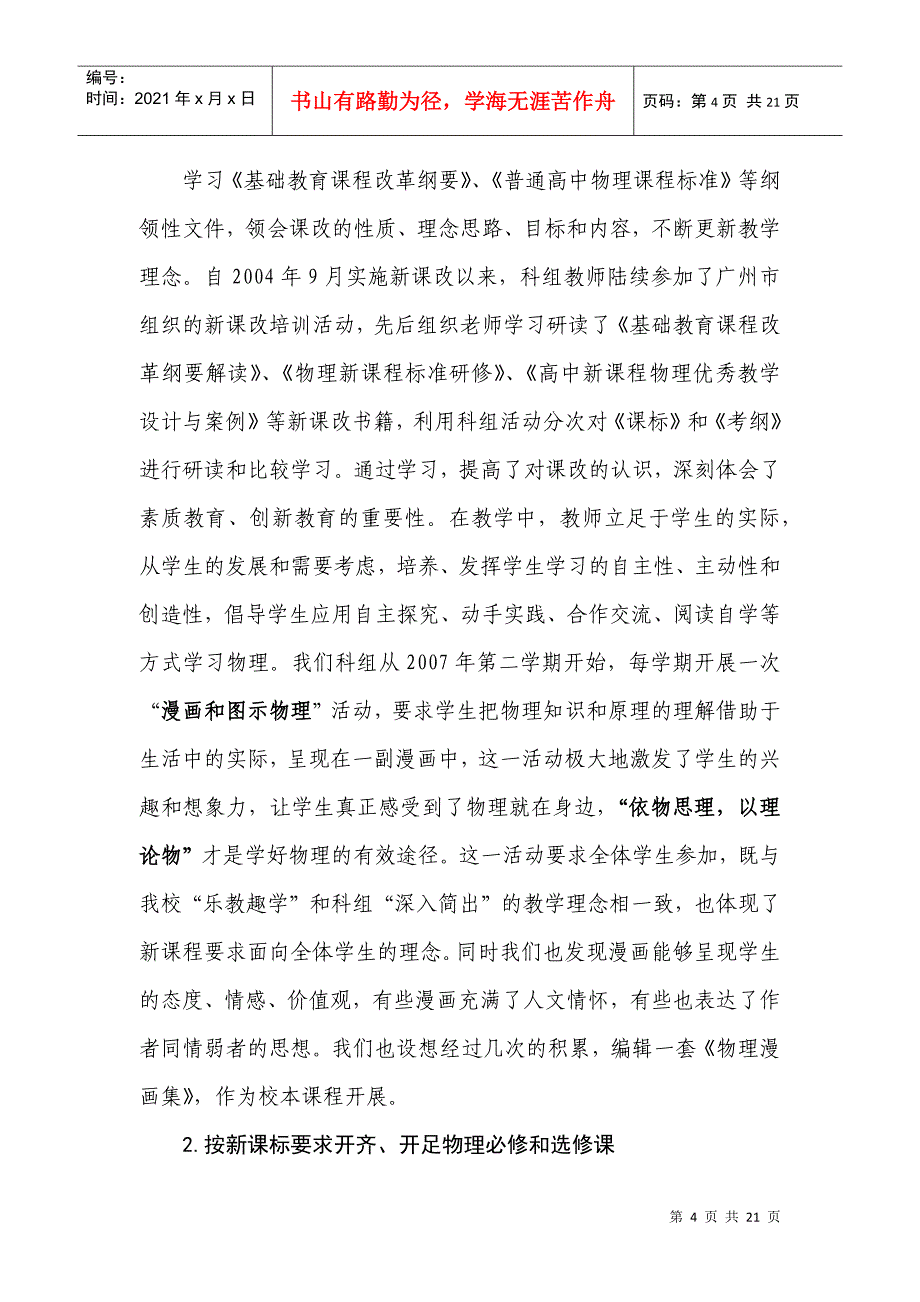 编号：
时间：2021年x月x日
书山有路勤为径，学海无涯苦作舟
页码：第4页 共21页
学习《基础教育课程改革纲要》、《普通高中物理课程标准》等纲
领性文件，领会课改的性质、理念思路、目标和内容，不断更新教学
理念。自 2004 年 9 月实施新课改以来，科组教师陆续参加了广州市
组织的新课改培训活动，先后组织老师学习研读了《基础教育课程改
革纲要解读》、《物理新课程标准研修》、《高中新课程物理优秀教学
设计与案例》等新课改书籍，利用科组活动分次对《课标》和《考纲》
进行研读和比较学习。通过学习，提高了对课改的认识，深刻体会了
素质教育、创新教育的重要性。在教学中，教师立足于学生的实际，
从学生的发展和需要考虑，培养、发挥学生学习的自主性、主动性和
创造性，倡导学生应用自主探究、动手实践、合作交流、阅读自学等
方式学习物理。我们科组从 2007 年第二学期开始，每学期开展一次
“漫画和图示物理”活动，要求学生把物理知识和原理的理解借助于
生活中的实际，呈现在一副漫画中，这一活动极大地激发了学生的兴
趣和想象力，让学生真正感受到了物理就在身边，“依物思理，以理
论物”才是学好物理的有效途径。这一活动要求全体学生参加，既与
我校“乐教趣学”和科组“深入简出”的教学理念相一致，也体现了
新课程要求面向全体学生的理念。同时我们也发现漫画能够呈现学生
的态度、情感、价值观，有些漫画充满了人文情怀，有些也表达了作
者同情弱者的思想。我们也设想经过几次的积累，编辑一套《物理漫
画集》，作为校本课程开展。
2.按新课标要求开齐、开足物理必修和选修课
第 4 页 共 21 页